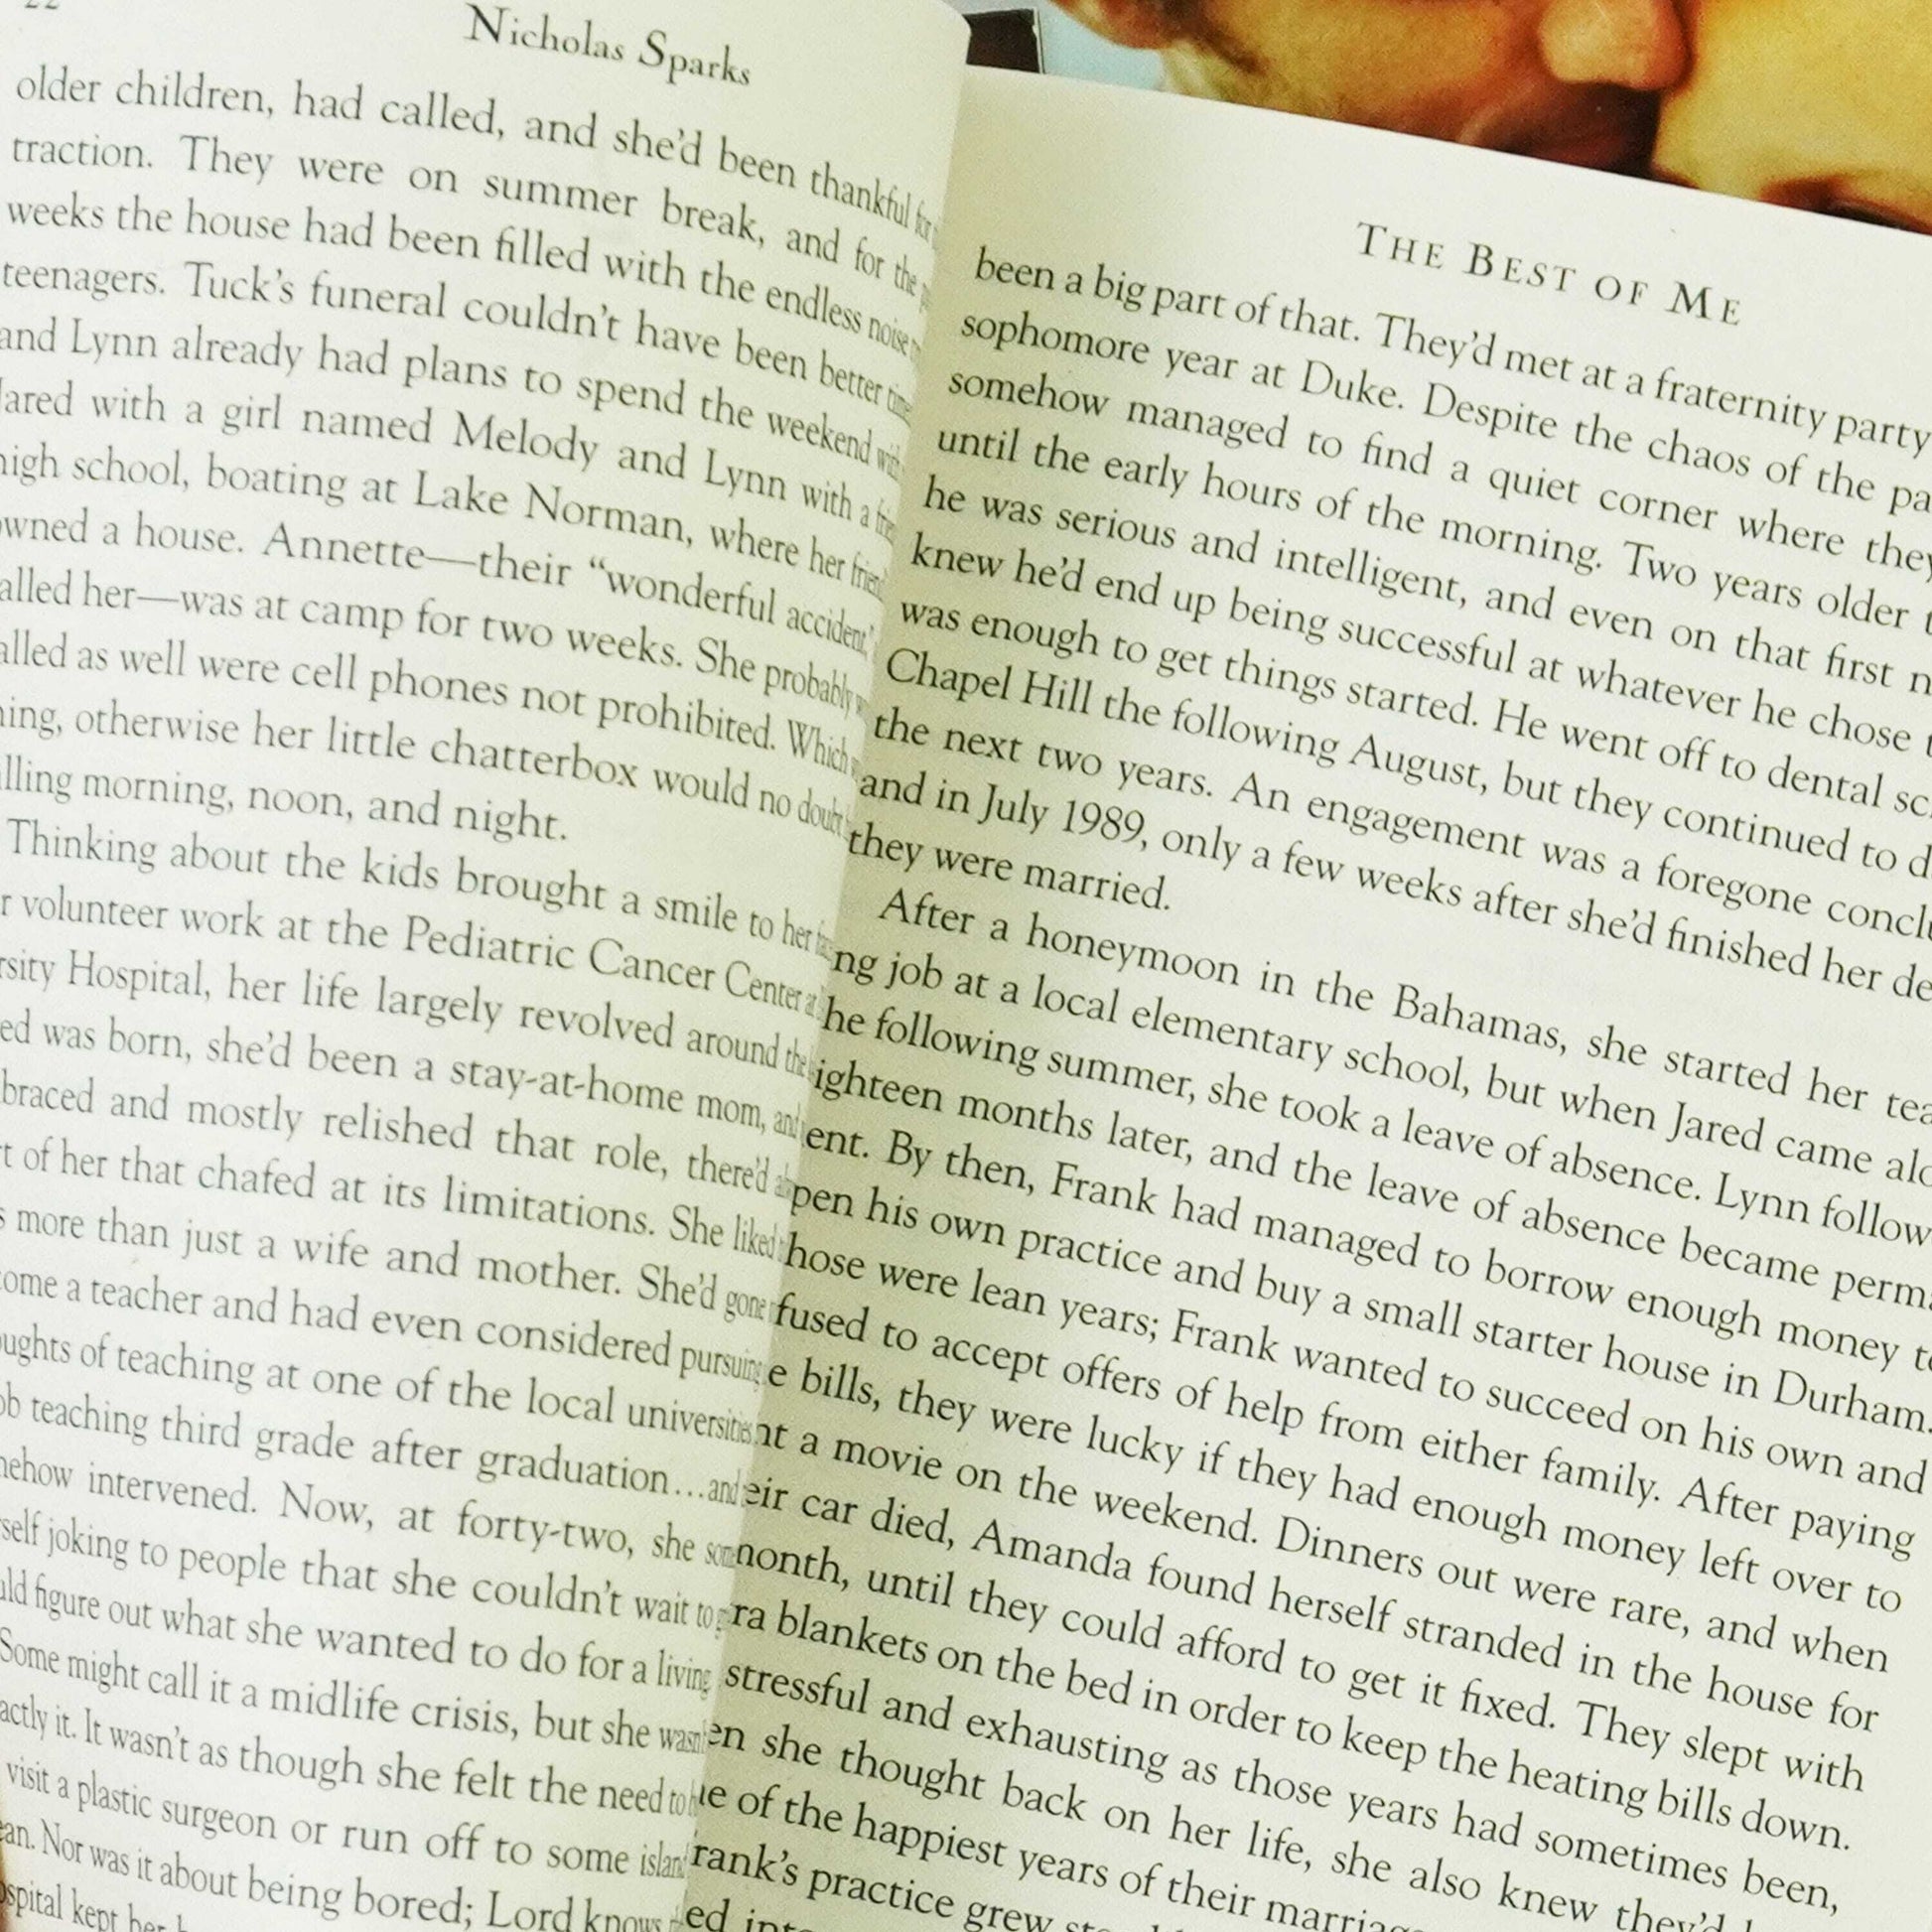 22
Nicholas Sparks
older children, had called, and she'd been thankful for
traction. They were on summer break, and for the
weeks the house had been filled with the endless noise
teenagers. Tuck's funeral couldn't have been better
and Lynn already had plans to spend the weekend
Jared with a girl named Melody and Lynn with a
high school, boating at Lake Norman, where her
owned a house. Annette—their "wonderful accident,"
called her—was at camp for two weeks. She probably
alled as well were cell phones not prohibited. Which
ning, otherwise her little chatterbox would no doubt
lling morning, noon, and night.
Thinking about the kids brought a smile to her
r volunteer work at the Pediatric Cancer Center at
rsity Hospital, her life largely revolved around the
ed was born, she'd been a stay-at-home mom, and
braced and mostly relished that role, there'd
t of her that chafed at its limitations. She liked
s more than just a wife and mother. She'd gone
ome a teacher and had even considered pursuing
oughts of teaching at one of the local universities
ob teaching third grade after graduation...and
mehow intervened. Now, at forty-two, she
self joking to people that she couldn't wait to
uld figure out what she wanted to do for a living.
Some might call it a midlife crisis, but she wasn't
actly it. It wasn't as though she felt the need to
visit a plastic surgeon or run off to some island
ean. Nor was it about being bored; Lord knows
ospital kept her
THE BEST OF ME
been a big part of that. They'd met at a fraternity party
sophomore year at Duke. Despite the chaos of the pa
somehow managed to find a quiet corner where they
until the early hours of the morning. Two years older
he was serious and intelligent, and even on that first
knew he'd end up being successful at whatever he chose
was enough to get things started. He went off to dental sc
Chapel Hill the following August, but they continued to d
the next two years. An engagement was a foregone conclu
and in July 1989, only a few weeks after she'd finished her de
they were married.
After a honeymoon in the Bahamas, she started her tea
ng job at a local elementary school, but when Jared came alo
he following summer, she took a leave of absence. Lynn follow
ighteen months later, and the leave of absence became perma
ent. By then, Frank had managed to borrow enough money to
pen his own practice and buy a small starter house in Durham.
hose were lean years; Frank wanted to succeed on his own and
fused to accept offers of help from either family. After paying
e bills, they were lucky if they had enough money left over to
nt a movie on the weekend. Dinners out were rare, and when
eir car died, Amanda found herself stranded in the house for
month, until they could afford to get it fixed. They slept with
ra blankets on the bed in order to keep the heating bills down.
stressful and exhausting as those years had sometimes been,
en she thought back on her life, she also knew they'd
ne of the happiest years of their marriage
rank's practice grew
ed into